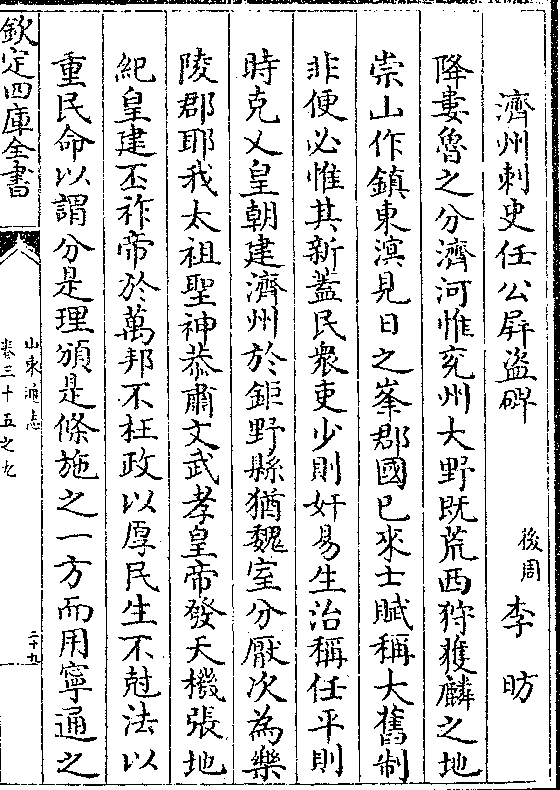 濟州刺史任公屏盗碑 後周 李昉
降婁魯之分濟河惟兖州大野既荒西狩獲麟之地
崇山作鎮東溟見日之峯郡國已來士賦稱大舊制
非便必惟其新蓋民衆吏少則奸易生治稱任平則
時克乂皇朝建濟州於鉅野縣猶魏室分厭次為樂
陵郡耶我太祖聖神恭肅文武孝皇帝發天機張地
紀皇建丕祚帝於萬邦不枉政以厚民生不尅法以
重民命以謂分是理頒是條施之一方而用寧通之
欽定四庫全書
山東通志
卷三十五之九
二十九